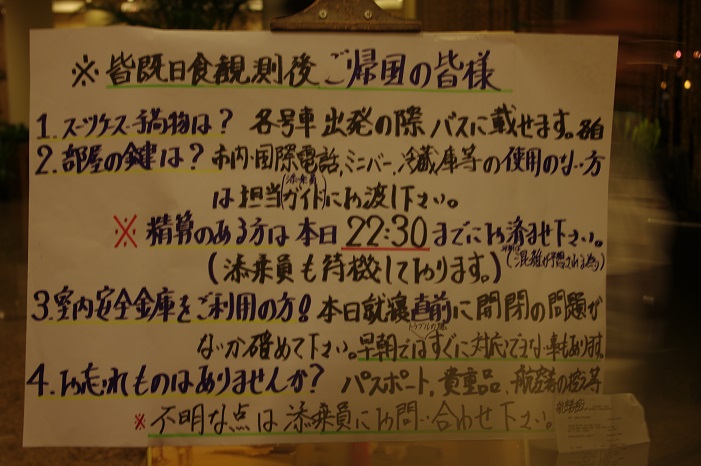 ※皆既日食観測後ご帰国の皆様
1.スーツケース・手荷物は？ 各号車出発の際バスに載せます。各自
2.部屋の鍵は？市内・国際電話,ミニバー,冷蔵庫等の使用のない方
は担当ガイドにお渡し下さい。
(添乗員)
※精算のある方は本日22:30までにお済ませ下さい。
(添乗員も待機しております。)
(混雑が予想される為)
3.室内安全金庫をご利用の方！本日就寝直前に開閉の問題が
ないか確めて下さい。早朝ではすぐに対応できない事もあります。
トラブルの際
4.お忘れものはありませんか？ パスポート,貴重品,航空券の控え等
※不明な点は添乗員にお問い合わせ下さい。